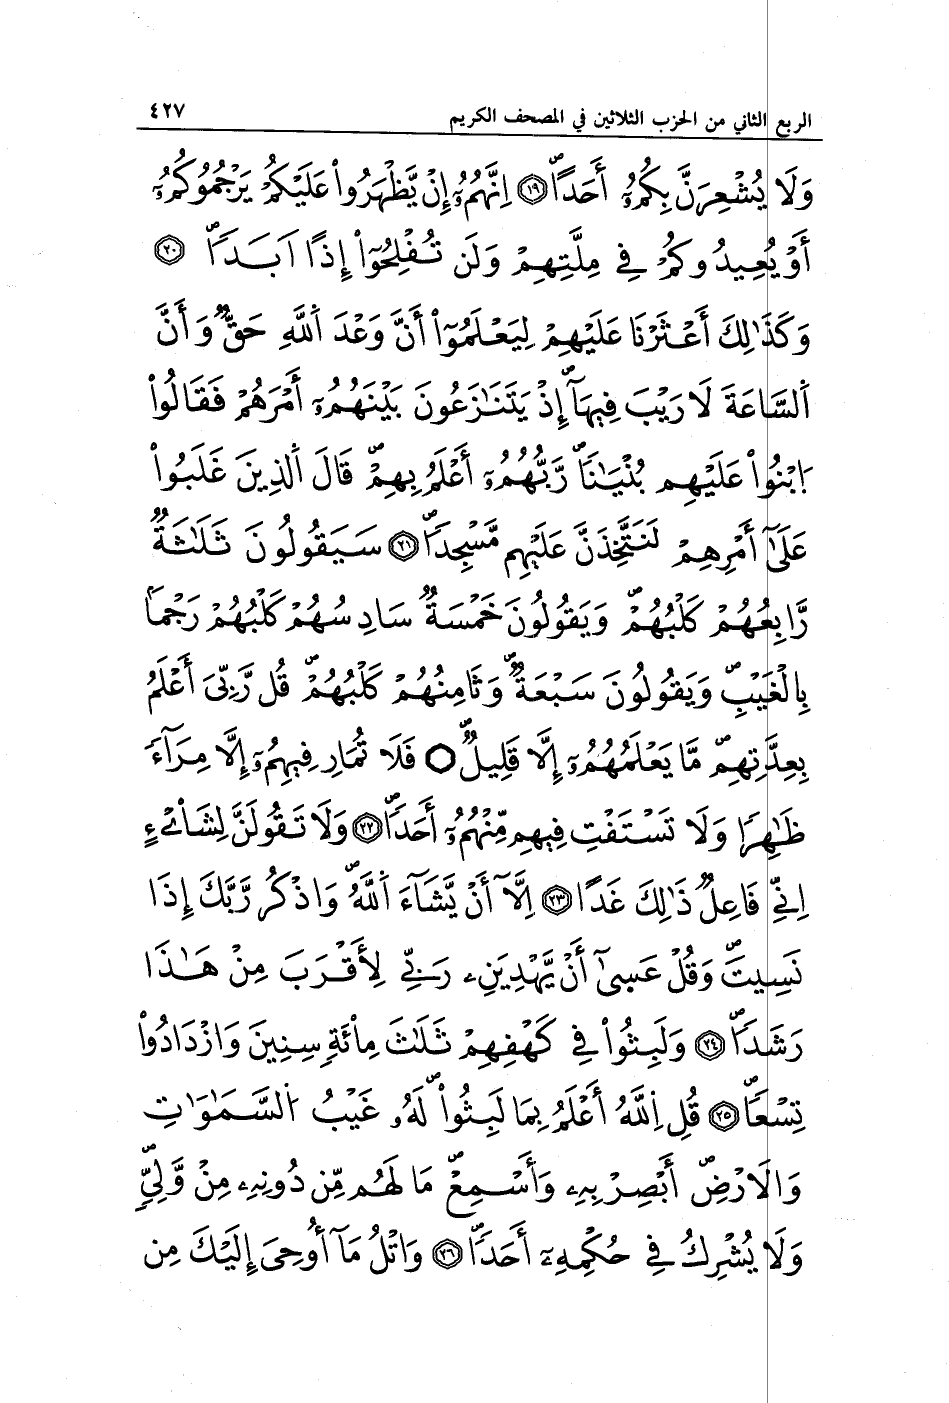 الربع الثاني من الحزب الثلاثين في المصحف الكريم ٤٢٧
وَلَا يُشْعِرَنَّ بِكُمُۥٓ أَحَدًاۖ ١٩ اِنَّهُمُۥٓ إِنْ يَّظْهَرُواْ عَلَيْكُمْ يَرْجُمُوكُمُۥٓ
أَوْ يُعِيدُوكُمْ فِي مِلَّتِهِمْ وَلَن تُفْلِحُوٓاْ إِذًا اَبَدًاۖ ٢٠
وَكَذَٰلِكَ أَعْثَرْنَا عَلَيْهِمْ لِيَعْلَمُوٓاْ أَنَّ وَعْدَ اَللَّهِ حَقٌّ وَأَنَّ
اَلسَّاعَةَ لَا رَيْبَ فِيهَآۖ إِذْ يَتَنَٰزَعُونَ بَيْنَهُمُۥٓ أَمْرَهُمْ فَقَالُواْ
اَبْنُواْ عَلَيْهِم بُنْيَٰنًاۖ رَّبُّهُمُۥٓ أَعْلَمُ بِهِمْۖ قَالَ اَلذِينَ غَلَبُواْ
عَلَىٰٓ أَمْرِهِمْ لَنَتَّخِذَنَّ عَلَيْهِم مَّسْجِدًاۖ ٢١ سَيَقُولُونَ ثَلَٰثَةٌ
رَّابِعُهُمْ كَلْبُهُمْۖ وَيَقُولُونَ خَمْسَةٌ سَادِسُهُمْ كَلْبُهُمْ رَجْمًا
بِالْغَيْبِۖ وَيَقُولُونَ سَبْعَةٌۖ وَثَامِنُهُمْ كَلْبُهُمْۖ قُل رَّبِّيَ أَعْلَمُ
بِعِدَّتِهِمۖ مَّا يَعْلَمُهُمُۥٓ إِلَّا قَلِيلٌۖ فَلَا تُمَارِ فِيهِمُۥٓ إِلَّا مِرَآءً
ظَٰهِرًا وَلَا تَسْتَفْتِ فِيهِم مِّنْهُمُۥٓ أَحَدًاۖ ٢٢ وَلَا تَقُولَنَّ لِشَاْيْءٍ
اِنِّي فَاعِلٌ ذَٰلِكَ غَدًا ٢٣ اِلَّآ أَنْ يَّشَآءَ اَللَّهُۖ وَاذْكُر رَّبَّكَ إِذَا
نَسِيتَۖ وَقُلْ عَسَىٰٓ أَنْ يَّهْدِيَنِۦ رَبِّي لِأَقْرَبَ مِنْ هَٰذَا
رَشَدًاۖ ٢٤ وَلَبِثُواْ فِي كَهْفِهِمْ ثَلَٰثَ مِاْئَةٍ سِنِينَ وَازْدَادُواْ
تِسْعًاۖ ٢٥ قُلِ اِللَّهُ أَعْلَمُ بِمَا لَبِثُواْۖ لَهُۥ غَيْبُ اُلسَّمَٰوَٰتِ
وَالَارْضِۖ أَبْصِرْ بِهِۦ وَأَسْمِعْۖ مَا لَهُم مِّن دُونِهِۦ مِنْ وَّلِيٍّۖ
وَلَا يُشْرِكُ فِي حُكْمِهِۦٓ أَحَدًاۖ ٢٦ وَاتْلُ مَآ أُوحِيَ إِلَيْكَ مِن